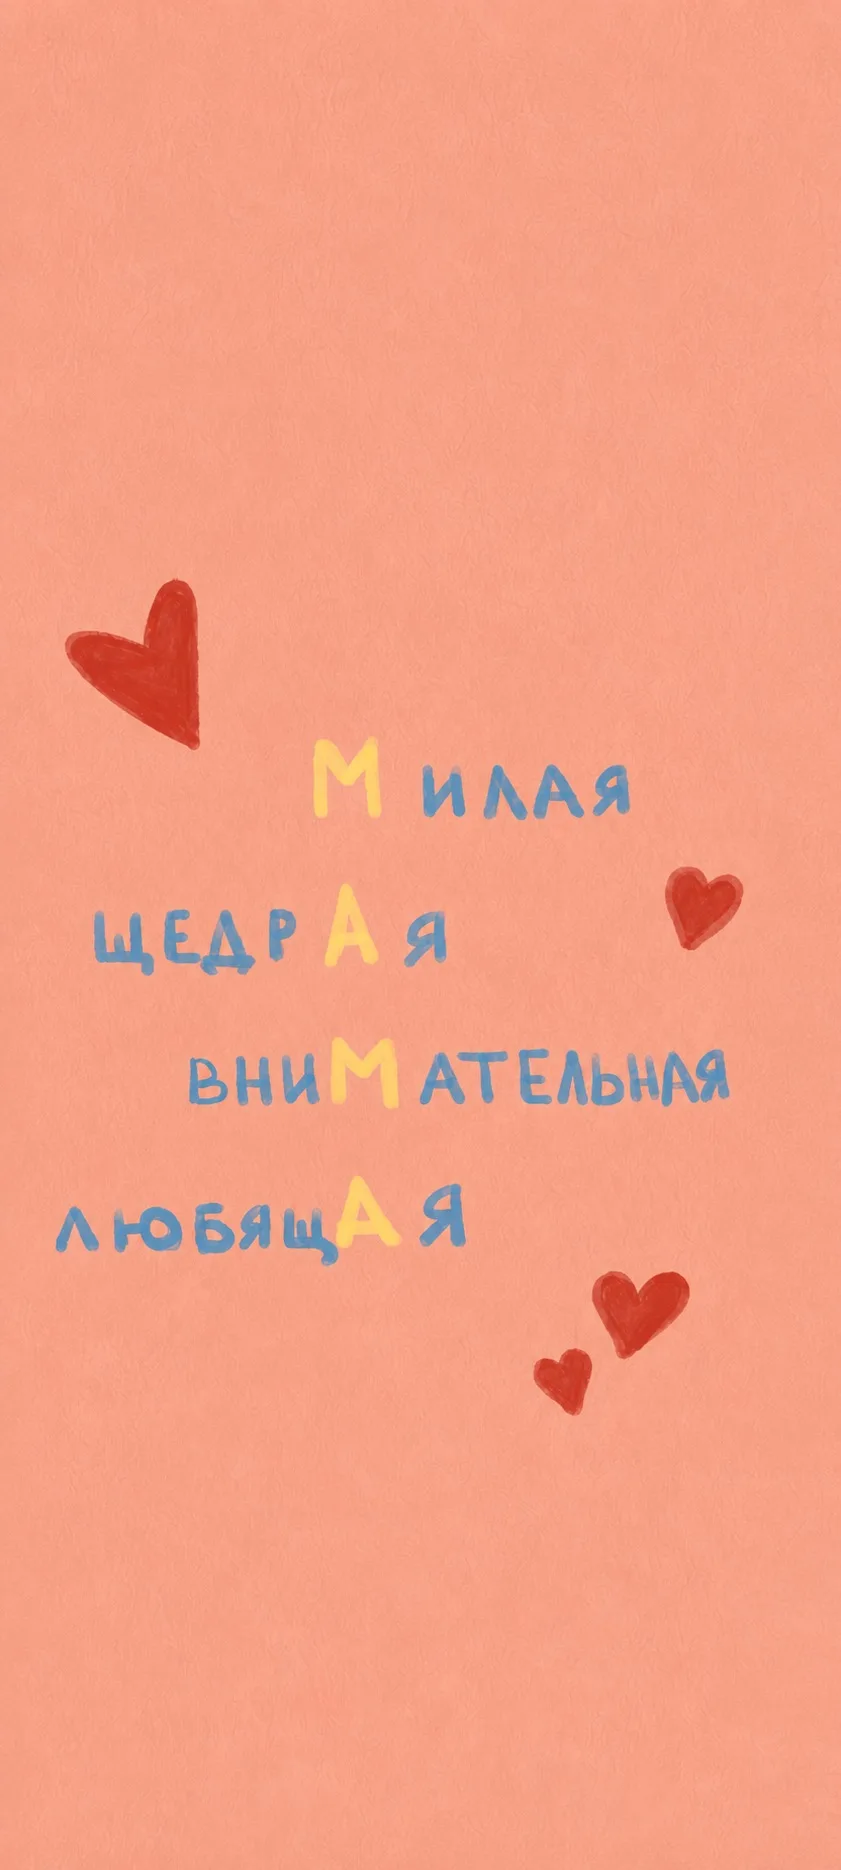 МИЛАЯ
ЩЕДРАЯ
ВНИМАТЕЛЬНАЯ
ЛЮБЯЩАЯ